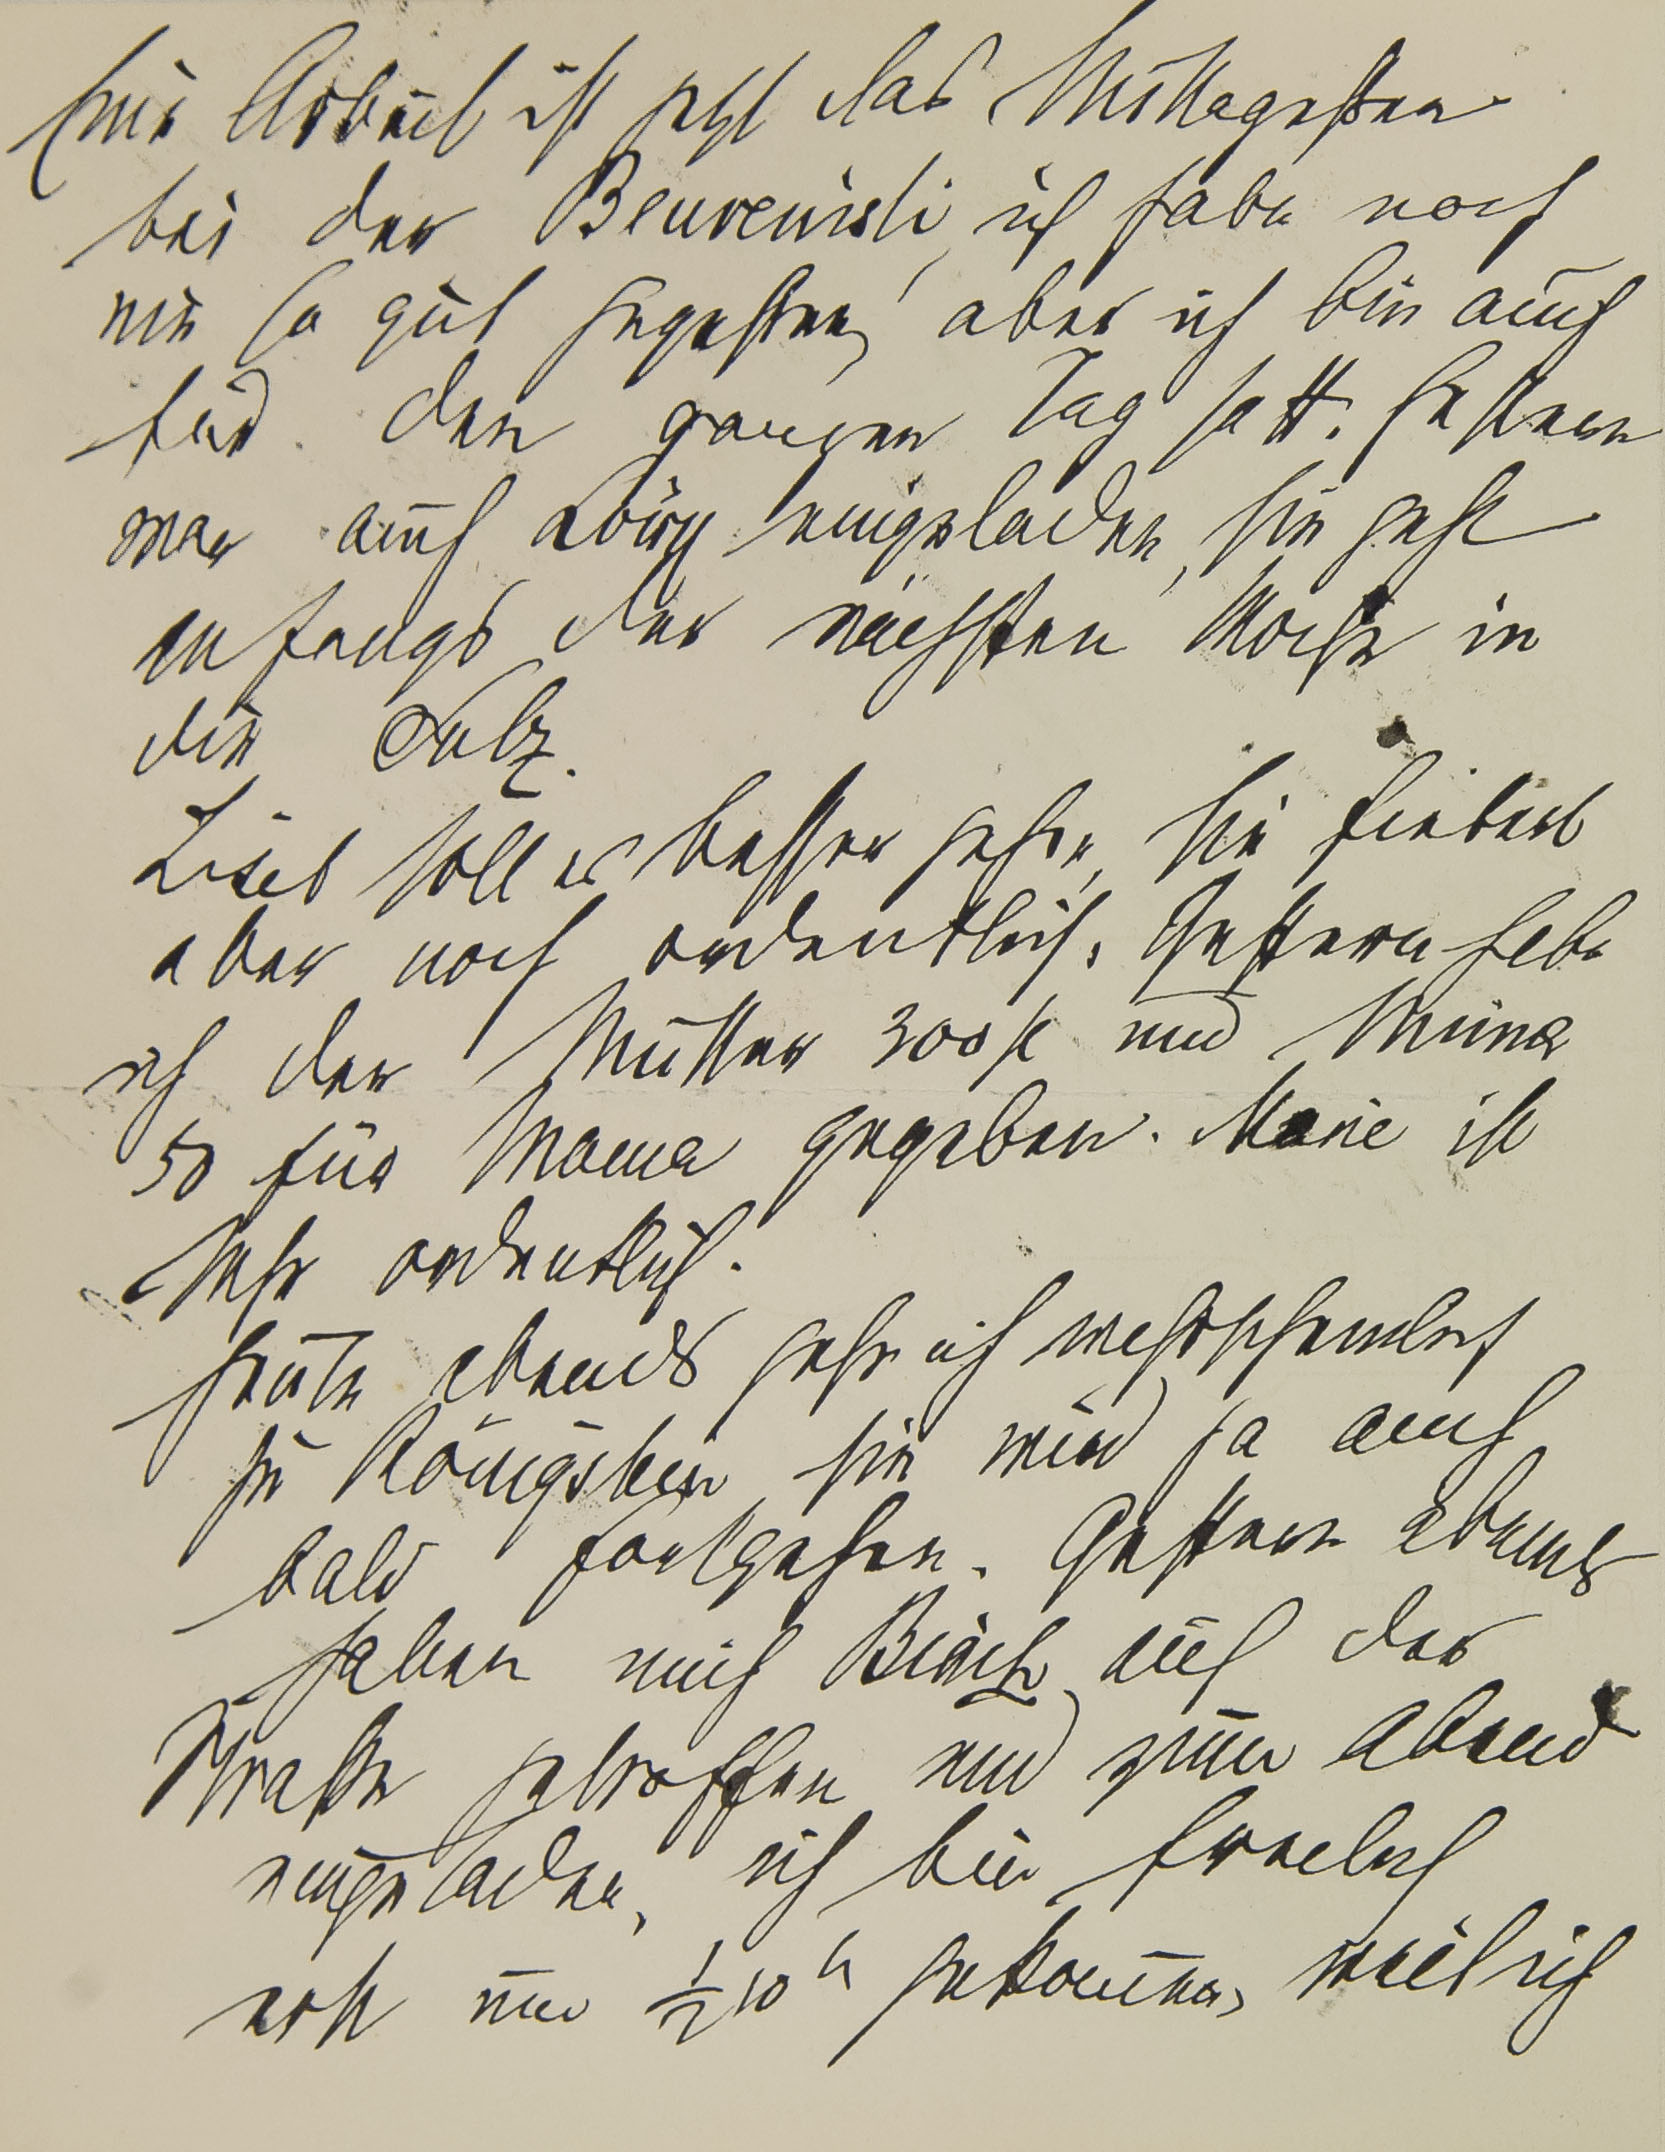 Eine Arbeit ist jetzt das Mittagessen
bei der Benvenisti, ich habe noch
nie so gut gegessen, aber ich bin auch
für den ganzen Tag satt. Gestern
war auch eingeladen, sie geht
anfangs der nächsten Woche in
die Sulz.
Liesl soll es besser gehen, sie fiebert
aber noch ordentlich. Gestern habe
ich der Mutter 300 K und Minna
50 für Mama gegeben. Marie ist
sehr ordentlich.
Heute abends gehe ich wahrscheinlich
zu Königstein, sie wird ja auch
bald fortgehen. Gestern abends
haben mich auf der
Straße getroffen und zum Abend
eingeladen, ich bin freilich
erst um ½10 h gekommen, weil ich